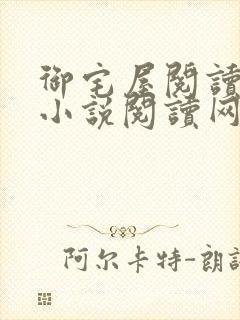 御宅屋閱讀
小說閱讀网
阿尔卡特-朗